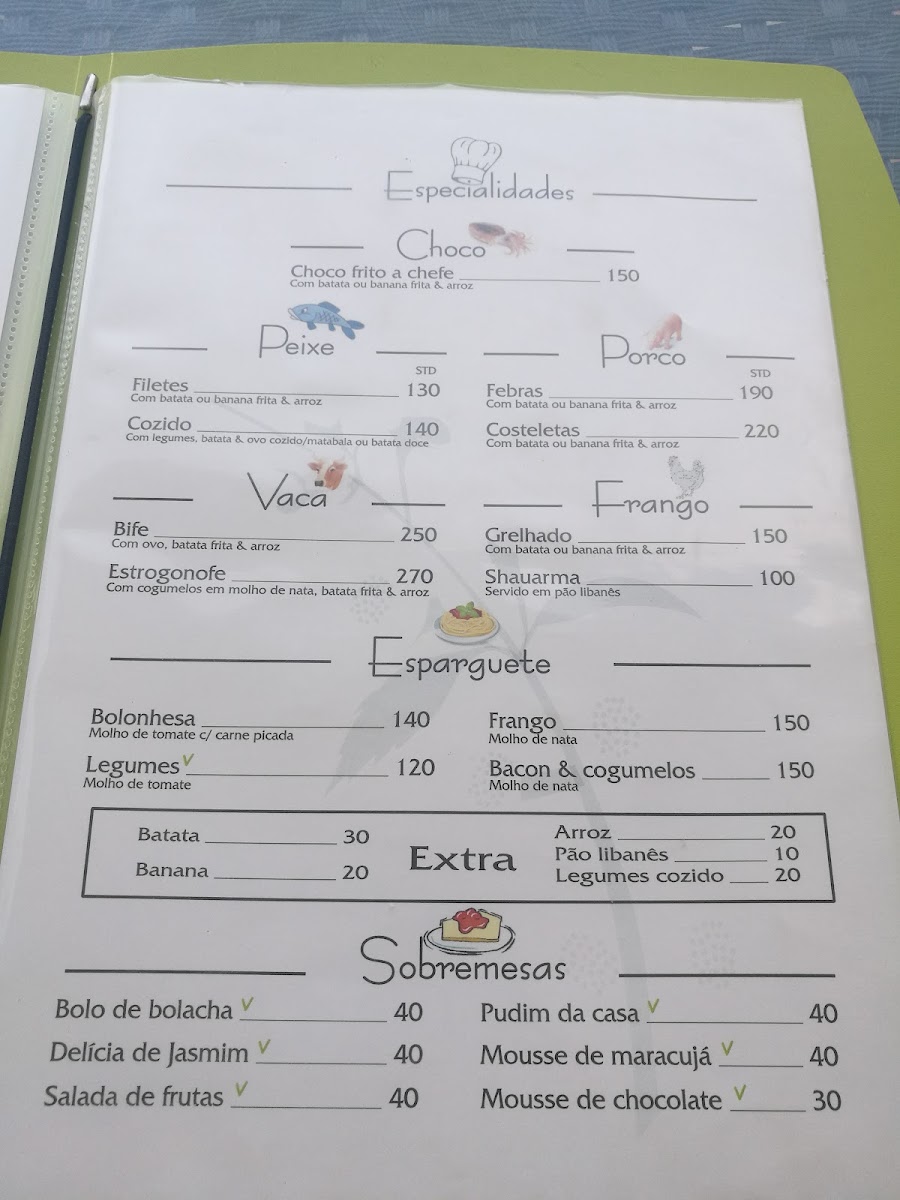 Especialidades
Choco
Choco frito a chefe 150
Com batata ou banana frita & arroz
Peixe
STD
Filetes 130
Com batata ou banana frita & arroz
Cozido 140
Com legumes, batata & ovo cozido/matabala ou batata doce
Porco
STD
Febras 190
Com batata ou banana frita & arroz
Costeletas 220
Com batata ou banana frita & arroz
Vaca
Bife 250
Com ovo, batata frita & arroz
Estrogonofe 270
Com cogumelos em molho de nata, batata frita & arroz
Frango
Grelhado 150
Com batata ou banana frita & arroz
Shauarma 100
Servido em pão libanês
Esparguete
Bolonhesa 140
Molho de tomate c/ carne picada
Legumes V 120
Molho de tomate
Frango 150
Molho de nata
Bacon & cogumelos 150
Molho de nata
Batata 30
Banana 20
Extra
Arroz 20
Pão libanês 10
Legumes cozido 20
Sobremesas
Bolo de bolacha V 40
Delícia de Jasmim V 40
Salada de frutas V 40
Pudim da casa V 40
Mousse de maracujá V 40
Mousse de chocolate V 30